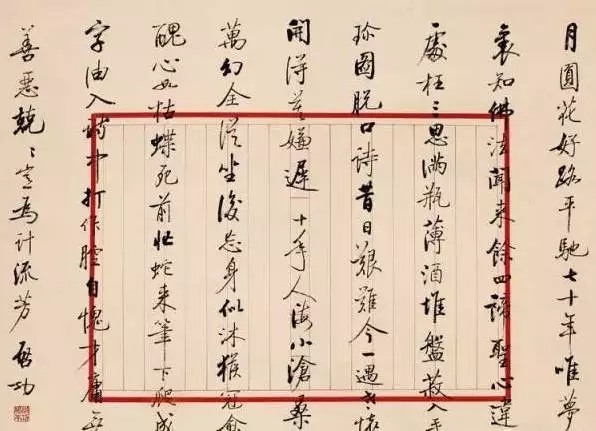 月圓花好路平馳七十年唯夢
裏知佛法聞來餘四諦聖心違
處枉三思滿瓶薄酒堆盤菽入手
珍圖脫口詩昔日艱難今一遇老懷
開得莫嫌遲 十年人海小滄桑
萬幻全從坐後忘身似沐猴冠愈
醜心如枯蝶死前忙蛇來筆下爬成
字油入詩中打作腔自愧才庸無
善惡兢〻豈為計流芳 啓功